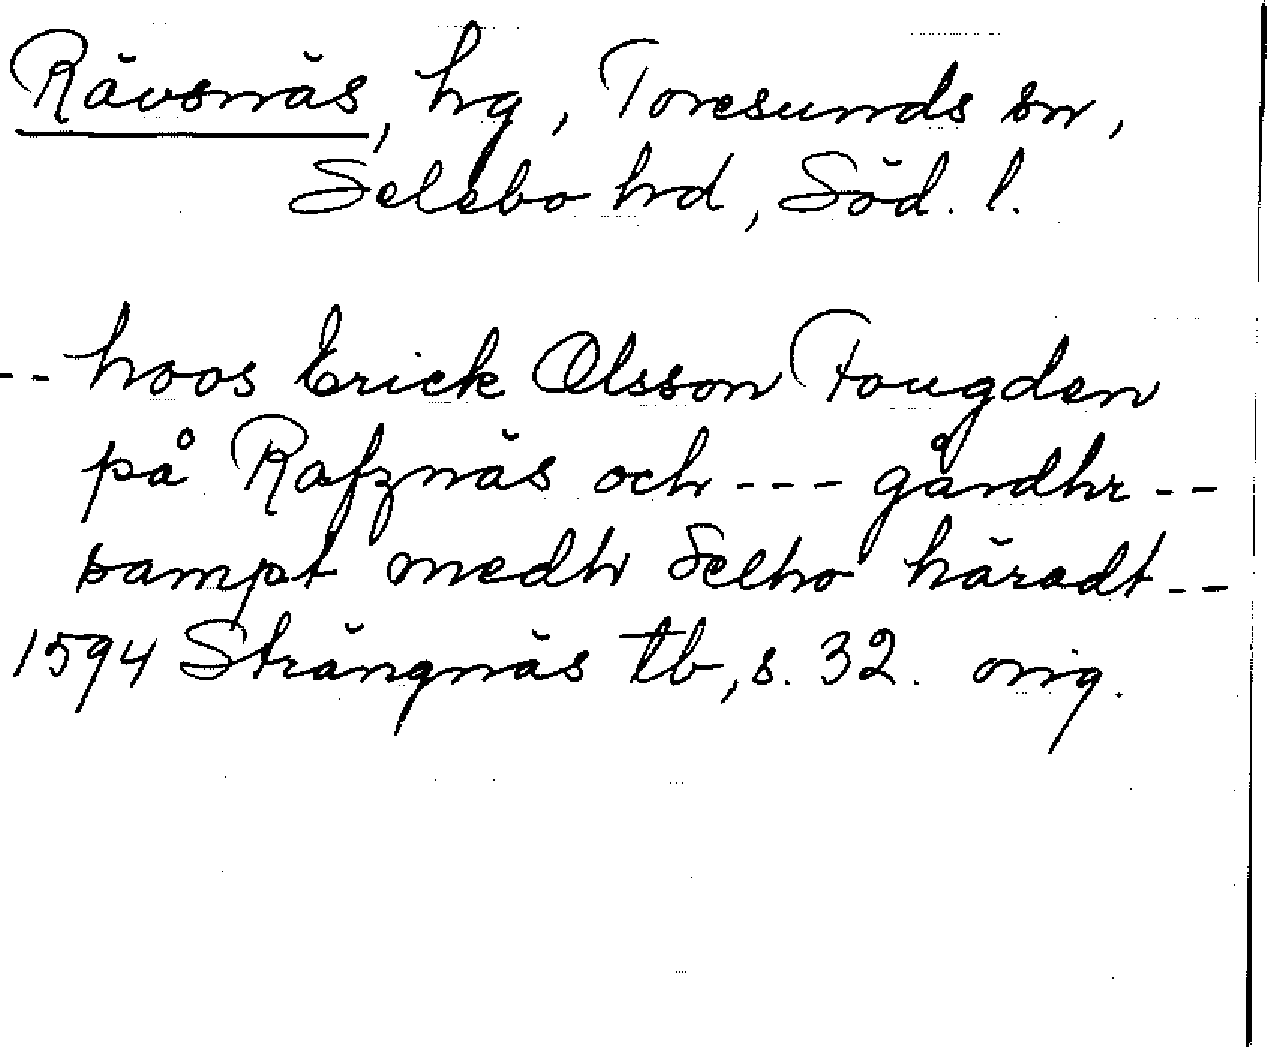 Rävsnäs, hg, Toresunds sn,
Selebo hrd, Söd. l.
-- hoos Erick Olsson Fougden
på Rafznäs och --- gårdhr --
sampt medh Selbo häradt --
1594 Strängnäs tb, s. 32. orig.